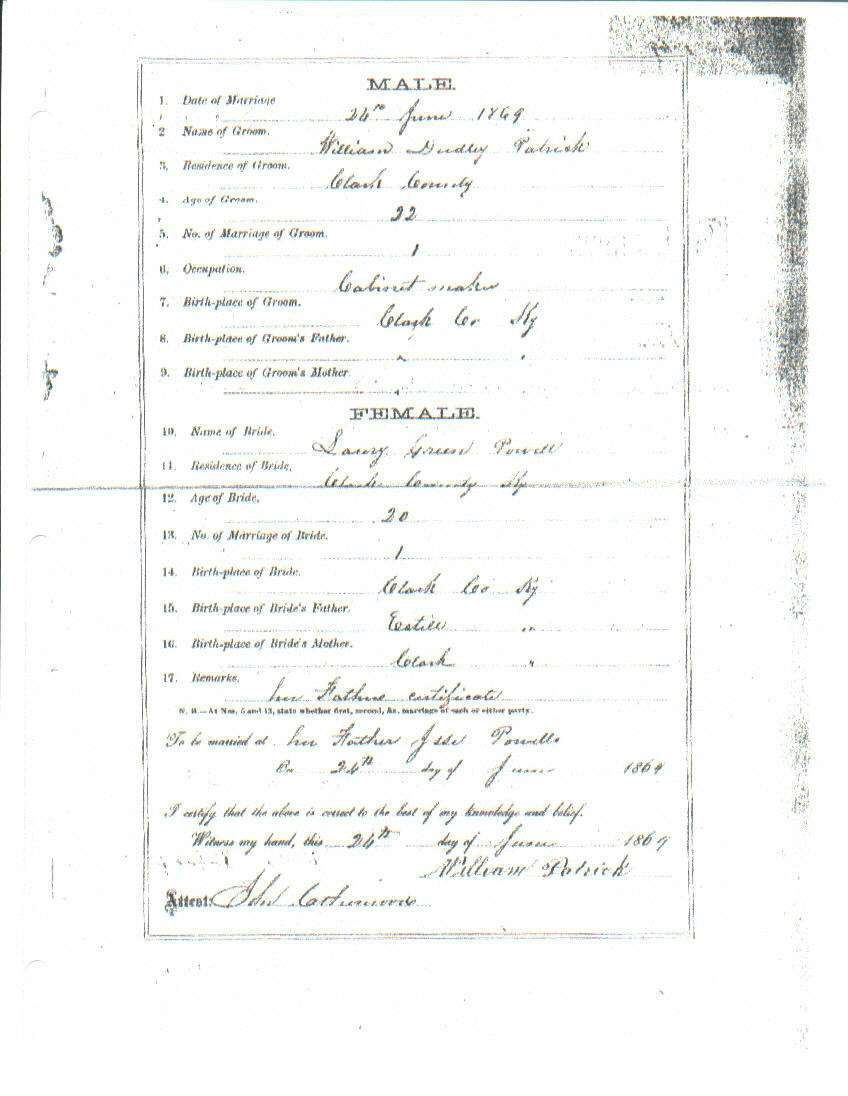 MALE.
1. Date of Marriage
24th June 1869
2 Name of Groom.
William Dudley Patrick
3. Residence of Groom.
Clark County
4. Age of Groom.
22
5. No. of Marriage of Groom.
1
6. Occupation.
Cabinet maker
7. Birth-place of Groom.
Clark Co Ky
8. Birth-place of Groom's Father.
" "
9. Birth-place of Groom's Mother
"
FEMALE.
10. Name of Bride.
Green Powell
11. Residence of Bride.
Clark County Ky
12. Age of Bride.
20
13. No. of Marriage of Bride.
1
14. Birth-place of Bride.
Clark Co Ky
15. Birth-place of Bride's Father.
Estill "
16. Birth-place of Bride's Mother.
Clark "
17. Remarks.
her Fathers certificate
N. B.—At Nos. 5 and 13, state whether first, second, &c. marriage of each or either party.
To be married at her Father Powells
On 24th day of June 1869
I certify that the above is correct to the best of my knowledge and belief.
Witness my hand, this 24th day of June 1869
William Patrick
Attest: John